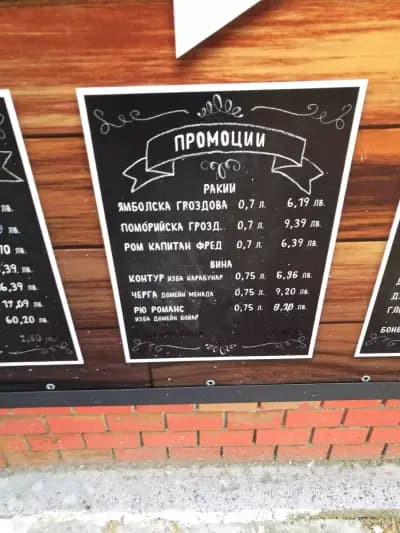 ПРОМОЦИИ
РАКИИ
ЯМБОЛСКА ГРОЗДОВА 0,7 л. 6,19 лв.
ПОМОРИЙСКА ГРОЗД. 0,7 л. 9,39 лв.
РОМ КАПИТАН ФРЕД 0,7 л. 6,39 лв.
ВИНА
КОНТУР ИЗБА КАРАБУНАР 0,75 л. 6,96 лв.
ЧЕРГА ДОМЕЙН МЕНАДА 0,75 л. 9,20 лв.
РЮ РОМАНС 0,75 л. 8,20 лв.
ИЗБА ДОМЕЙН БОЯР
лв.
лв.
лв.
,39 лв.
6,39 лв.
17,09 лв.
60,20 лв.